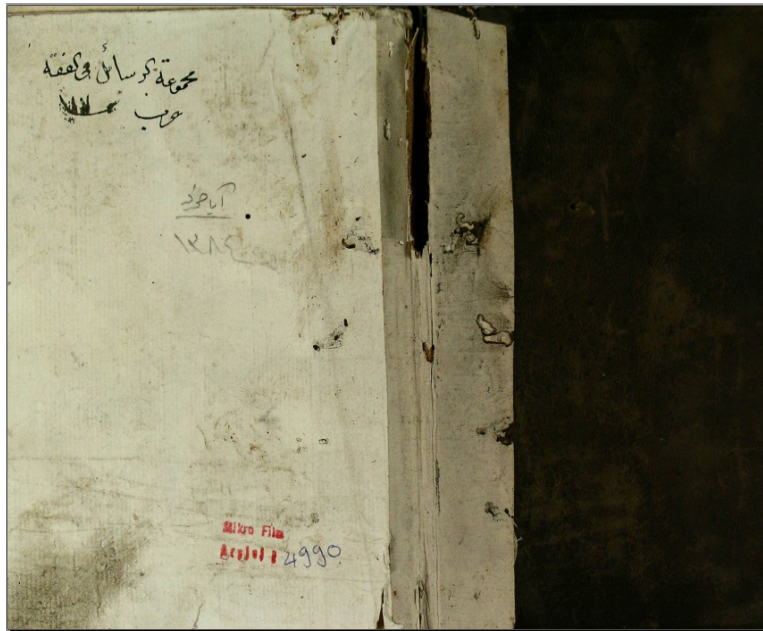 مجموعة الرسائل في الفقه
عرب
آياصوفيا
١٣٨٤
Mikro Film
Arşivi 4990